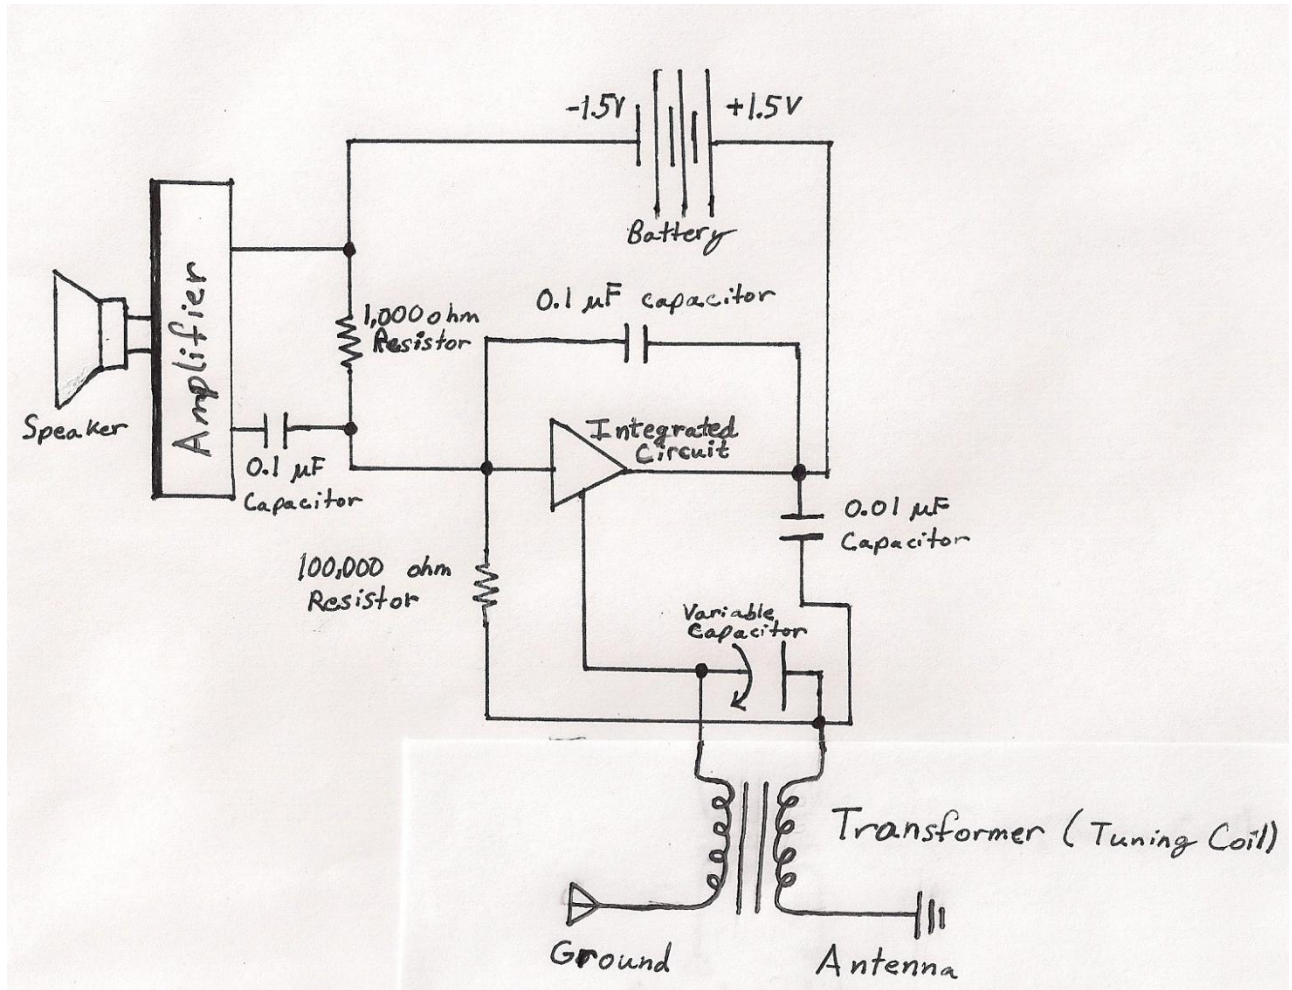 -1.5V
+1.5V
Battery
0.1 µF capacitor
1,000 ohm
Resistor
Amplifier
Speaker
0.1 µF
Capacitor
Integrated
Circuit
0.01 µF
Capacitor
100,000 ohm
Resistor
Variable
Capacitor
Transformer (Tuning Coil)
Ground
Antenna